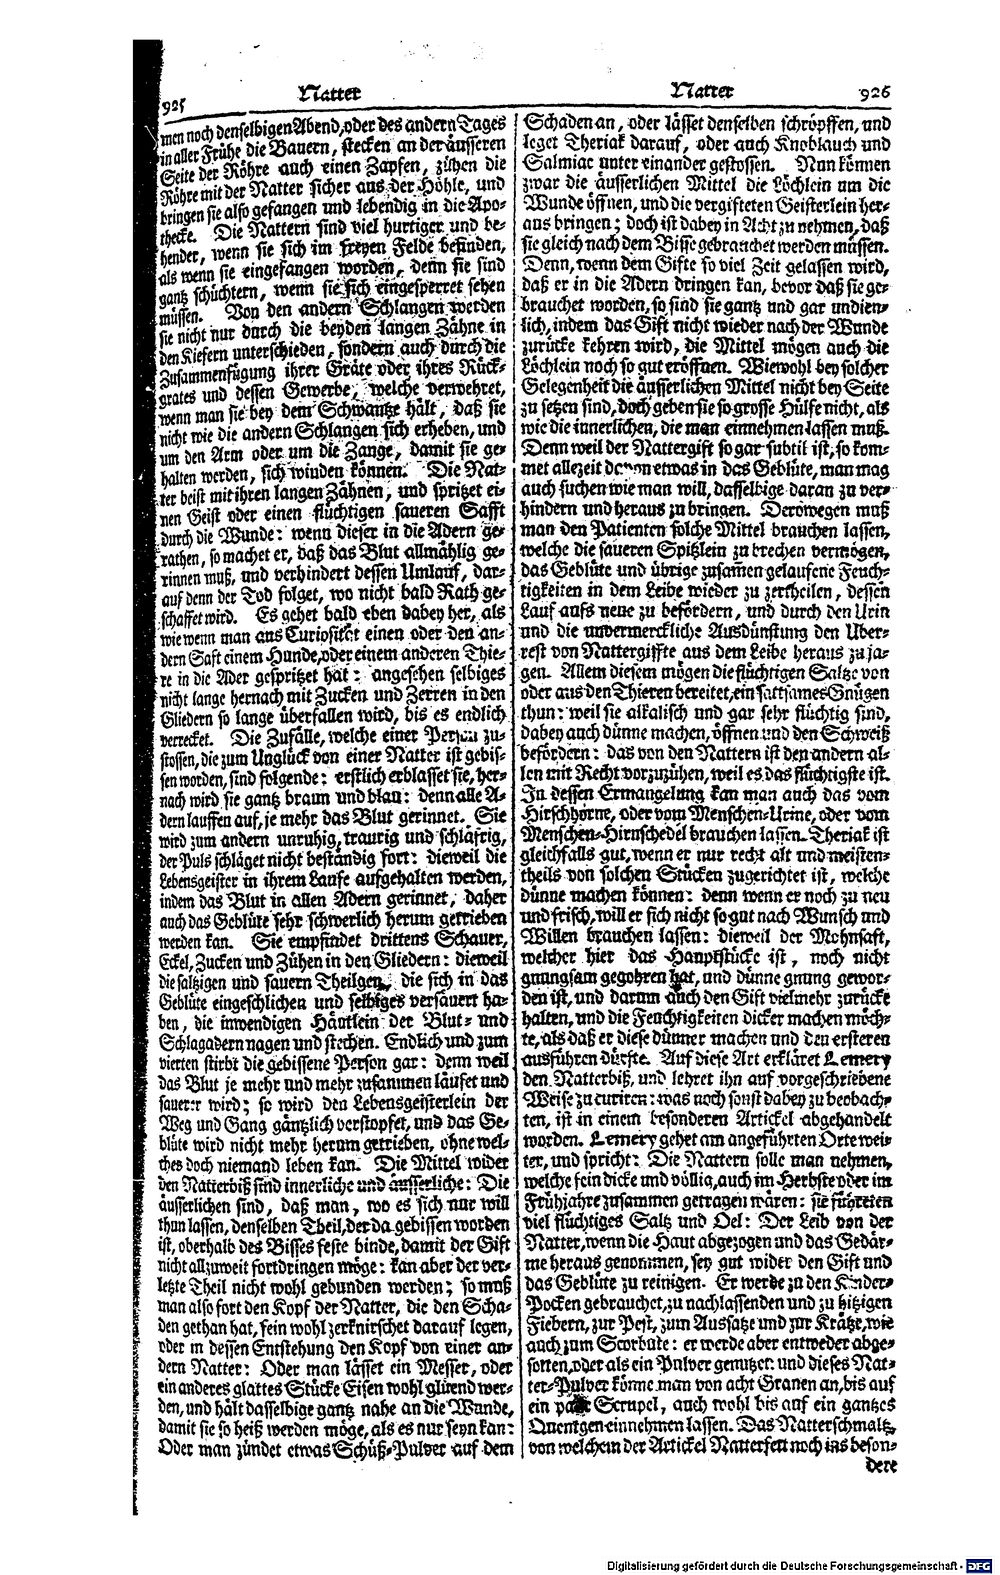 925
Natter
men noch denselbigen Abend, oder des andern Tages
in aller Frühe die Bauern, stecken an der äusseren
Seite der Röhre auch einen Zapfen, zühen die
Röhre mit der Natter sicher aus der Höhle, und
bringen sie also gefangen und lebendig in die Apo-
thecke. Die Nattern sind viel hurtiger und be-
hender, wenn sie sich im freyen Felde befinden,
als wenn sie eingefangen worden, denn sie sind
gantz schüchtern, wenn sie sich eingesperret sehen
müssen. Von den andern Schlangen werden
sie nicht nur durch die beyden langen Zähne in
den Kiefern unterschieden, sondern auch durch die
Zusammenfügung ihrer Gräte oder ihres Rück-
grates und dessen Gewerbe, welche verwehret,
wenn man sie bey dem Schwantze hält, daß sie
nicht wie die andern Schlangen sich erheben, und
um den Arm oder um die Zange, damit sie ge-
halten werden, sich winden können. Die Nat-
ter beist mit ihren langen Zähnen, und spritzet ei-
nen Geist oder einen flüchtigen saueren Safft
durch die Wunde: wenn dieser in die Adern ge-
rathen, so machet er, daß das Blut allmählig ge-
rinnen muß, und verhindert dessen Umlauf, dar-
auf denn der Tod folget, wo nicht bald Rath ge-
schaffet wird. Es gehet bald eben dabey her, als
wie wenn man aus Curiosität einen oder den an-
dern Saft einem Hunde, oder einem anderen Thie-
re in die Ader gespritzet hat: angesehen selbiges
nicht lange hernach mit Zucken und Zerren in den
Gliedern so lange überfallen wird, bis es endlich
verrecket. Die Zufälle, welche einer Person zu-
stossen, die zum Unglück von einer Natter ist gebis-
sen worden, sind folgende: erstlich erblasset sie, her-
nach wird sie gantz braun und blau: denn alle A-
dern lauffen auf, je mehr das Blut gerinnet. Sie
wird zum andern unruhig, traurig und schläfrig,
der Puls schläget nicht beständig fort: dieweil die
Lebensgeister in ihrem Laufe aufgehalten werden,
indem das Blut in allen Adern gerinnet, daher
auch das Geblüte sehr schwerlich herum getrieben
werden kan. Sie empfindet drittens Schauer,
Eckel, Zucken und Zühen in den Gliedern: dieweil
die saltzigen und sauern Theilgen, die sich in das
Geblüte eingeschlichen und selbiges versäuert ha-
ben, die inwendigen Häutlein der Blut- und
Schlagadern nagen und stechen. Endlich und zum
vierten stirbt die gebissene Person gar: denn weil
das Blut je mehr und mehr zusammen läufet und
sauerer wird; so wird den Lebensgeisterlein der
Weg und Gang gäntzlich verstopfet, und das Ge-
blüte wird nicht mehr herum getrieben, ohne wel-
ches doch niemand leben kan. Die Mittel wider
den Natterbiß sind innerliche und äusserliche: Die
äusserlichen sind, daß man, wo es sich nur will
thun lassen, denselben Theil, der da gebissen worden
ist, oberhalb des Bisses feste binde, damit der Gift
nicht allzuweit fortdringen möge: kan aber der ver-
letzte Theil nicht wohl gebunden werden; so muß
man also fort den Kopf der Natter, die den Scha-
den gethan hat, fein wohl zerknirschet darauf legen,
oder in dessen Entstehung den Kopf von einer an-
dern Natter: Oder man lässet ein Messer, oder
ein anderes glattes Stücke Eisen wohl glüend wer-
den, und hält dasselbige gantz nahe an die Wunde,
damit sie so heiß werden möge, als es nur seyn kan:
Oder man zündet etwas Schüß-Pulver auf dem
Natter
926
Schaden an, oder lässet denselben schröpffen, und
leget Theriak darauf, oder auch Knoblauch und
Salmiac unter einander gestossen. Nun können
zwar die äusserlichen Mittel die Löchlein um die
Wunde öffnen, und die vergifteten Geisterlein her-
aus bringen; doch ist dabey in Acht zu nehmen, daß
sie gleich nach dem Bisse gebrauchet werden müssen.
Denn, wenn dem Gifte so viel Zeit gelassen wird,
daß er in die Adern dringen kan, bevor daß sie ge-
brauchet worden, so sind sie gantz und gar undien-
lich, indem das Gift nicht wieder nach der Wunde
zurücke kehren wird, die Mittel mögen auch die
Löchlein noch so gut eröffnen. Wiewohl bey solcher
Gelegenheit die äusserlichen Mittel nicht bey Seite
zu setzen sind, doch geben sie so grosse Hülfe nicht, als
wie die innerlichen, die man einnehmen lassen muß.
Denn weil der Nattergift so gar subtil ist, so kom-
met allezeit davon etwas in das Geblüte, man mag
auch suchen wie man will, dasselbige daran zu ver-
hindern und heraus zu bringen. Derowegen muß
man den Patienten solche Mittel brauchen lassen,
welche die saueren Spitzlein zu brechen vermögen,
das Geblüte und übrige zusam̃en gelaufene Feuch-
tigkeiten in dem Leibe wieder zu zertheilen, dessen
Lauf aufs neue zu befördern, und durch den Urin
und die unvermerckliche Ausdünstung den Uber-
rest von Nattergiffte aus dem Leibe heraus zu ja-
gen. Allem diesem mögen die flüchtigen Saltze von
oder aus den Thieren bereitet, ein sattsames Gnügen
thun: weil sie alkalisch und gar sehr flüchtig sind,
dabey auch dünne machen, öffnen und den Schweiß
befördern: das von den Nattern ist den andern al-
len mit Recht vorzuzühen, weil es das flüchtigste ist.
In dessen Ermangelung kan man auch das vom
Hirschhorne, oder vom Menschen-Urine, oder vom
Menschen-Hirnschedel brauchen lassen. Theriak ist
gleichfalls gut, wenn er nur recht alt und meisten-
theils von solchen Stücken zugerichtet ist, welche
dünne machen können: denn wenn er noch zu neu
und frisch, will er sich nicht so gut nach Wunsch und
Willen brauchen lassen: dieweil der Mohnsaft,
welcher hier das Hauptstücke ist, noch nicht
gnungsam gegohren hat, und dünne gnung gewor-
den ist, und darum auch den Gift vielmehr zurücke
halten, und die Feuchtigkeiten dicker machen möch-
te, als daß er diese dünner machen und den ersteren
ausführen dürfte. Auf diese Art erkläret Lemery
den Natterbiß, und lehret ihn auf vorgeschriebene
Weise zu curiren: was noch sonst dabey zu beobach-
ten, ist in einem besonderen Artickel abgehandelt
worden. Lemery gehet am angeführten Orte wei-
ter, und spricht: Die Nattern solle man nehmen,
welche fein dicke und völlig, auch im Herbste oder im
Frühjahre zusammen getragen wären: sie führeten
viel flüchtiges Saltz und Oel: Der Leib von der
Natter, wenn die Haut abgezogen und das Gedär-
me heraus genommen, sey gut wider den Gift und
das Geblüte zu reinigen. Er werde zu den Kinder-
Pocken gebrauchet, zu nachlassenden und zu hitzigen
Fiebern, zur Pest, zum Aussatze und zur Krätze, wie
auch zum Scorbute: er werde aber entweder abge-
sotten, oder als ein Pulver genutzet: und dieses Nat-
ter-Pulver könne man von acht Granen an, bis auf
ein paar Scrupel, auch wohl bis auf ein gantzes
Quentgen einnehmen lassen. Das Natterschmaltz,
von welchem der Artickel Natterfett noch ins beson-
dere
Digitalisierung gefördert durch die Deutsche Forschungsgemeinschaft - DFG